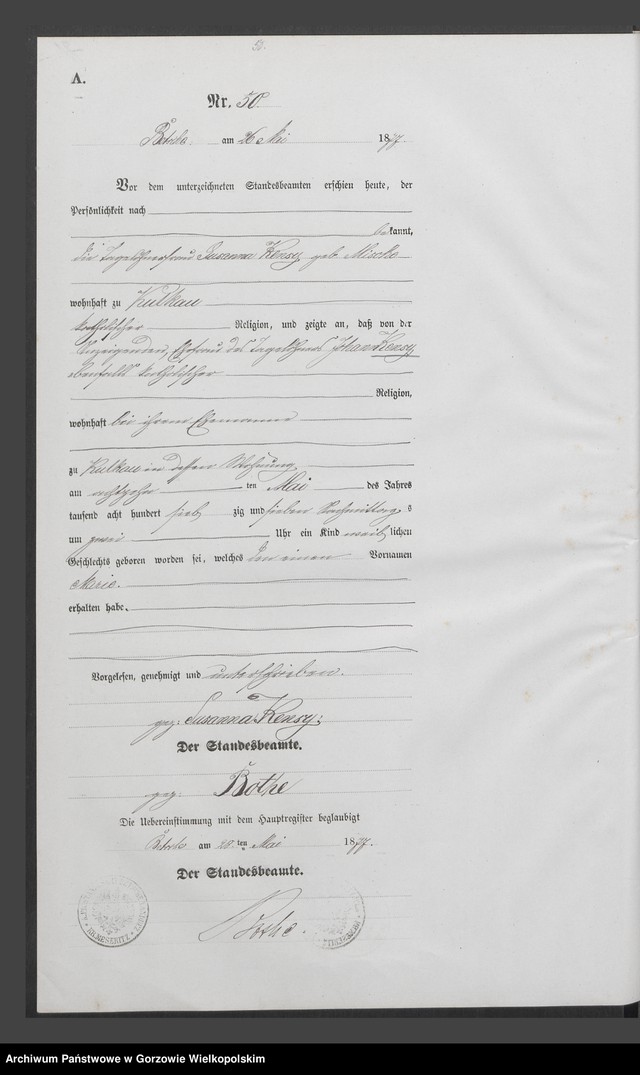 50.
A.
Nr. 50.
am 26 Mai 1877.
Vor dem unterzeichneten Standesbeamten erschien heute, der
Persönlichkeit nach
bekannt,
die Tagelöhnerfrau Susanna Kensy geb.
wohnhaft zu Kulkau
katholischer Religion, und zeigte an, daß von der
Anzeigenden, Ehefrau des Tagelöhners Kensy
ebenfalls katholischer
Religion,
wohnhaft bei ihrem Ehemanne
zu Kulkau in dessen Wohnung
am achtzehn ten Mai des Jahres
tausend acht hundert sieb zig und sieben Nachmittag s
um zwei Uhr ein Kind weib lichen
Geschlechts geboren worden sei, welches den einen Vornamen
Marie.
erhalten habe.
Vorgelesen, genehmigt und unterschrieben.
gez: Susanna Kensy.
Der Standesbeamte.
gez. Bothe
Die Uebereinstimmung mit dem Hauptregister beglaubigt
am ten Mai 1877.
Der Standesbeamte.
Bothe.
MESERITZ
Archiwum Państwowe w Gorzowie Wielkopolskim